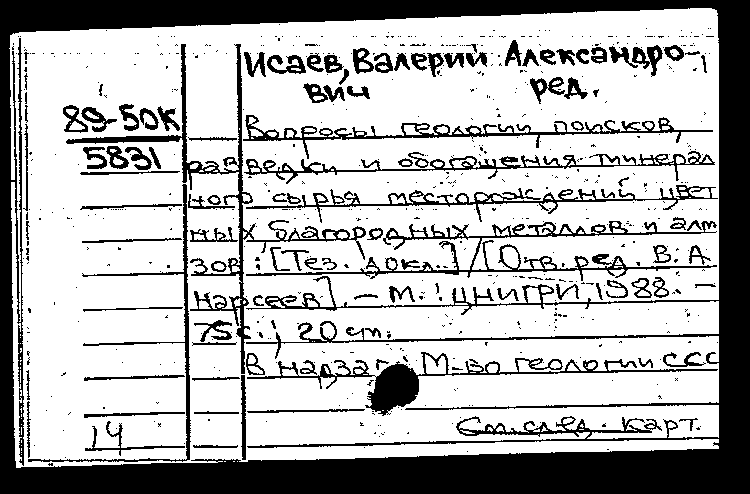 Исаев, Валерий Александро-
вич ред.
89-50К
5831
Вопросы геологии, поисков,
разведки и обогащения минерал
ного сырья месторождений цвет
ных, благородных металлов и алм
зов : [Тез. докл.] / [Отв. ред. В. А.
Нарсеев]. - М. : ЦНИГРИ, 1988. -
75 с. ; 20 см.
В надзаг.: М-во геологии ССС
14
См. след. карт.